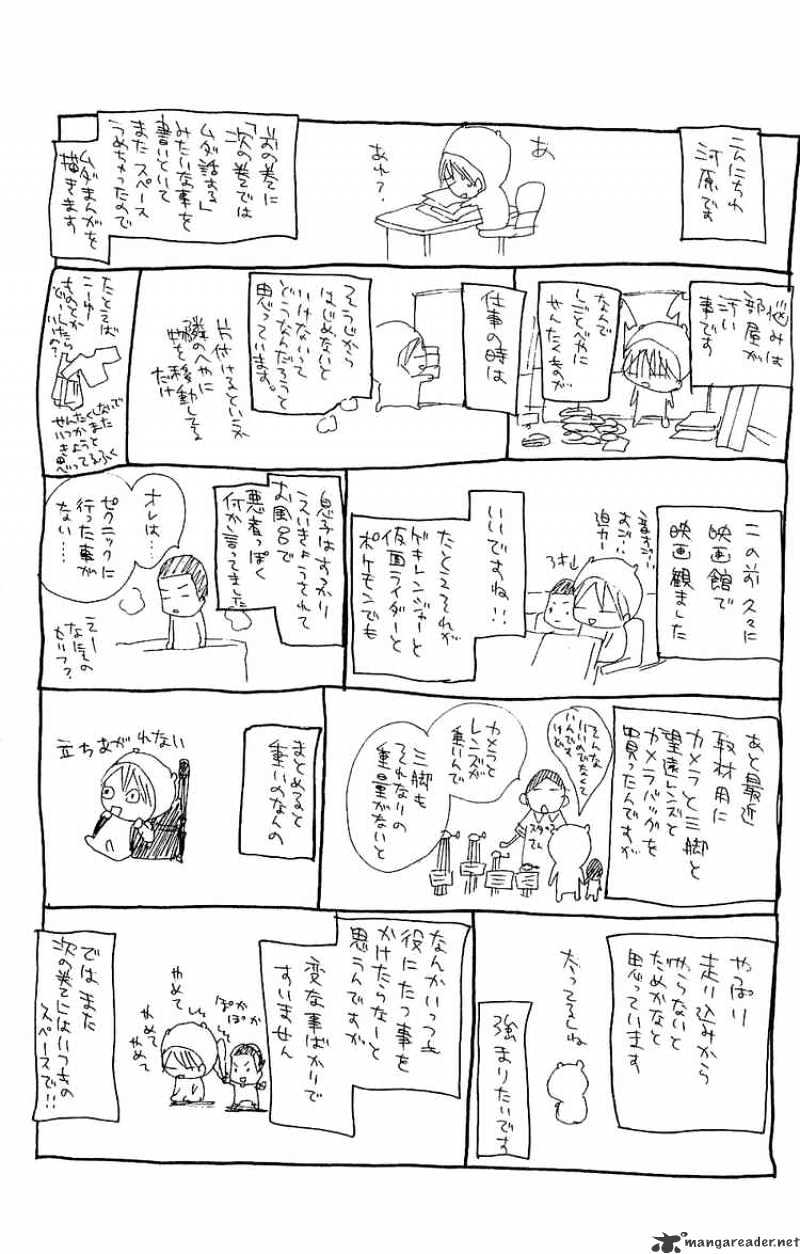 こんにちわ
河原です
あ
あれ?
前の巻に
「次の巻では
ムダ話する」
みたいな事を
書いといて
また スペース
うめちゃったので
ムダまんがを
描きます
悩みは
部屋が
汚い
事です
なんで
しごとべやに
せんたくものが
仕事の時は
そうじから
はじめないと
いけないって
どうなんだろうと
思っています。
片付けるというか
隣のへやに
物を移動してる
だけ
たとえば
こーゆー
ものとか
どーしたら
いいの?
この前 久々に
映画館で
映画観ました
音がっ!!
迫力ー
いいですね!!
たとえそれが
ゲキレンジャーと
仮面ライダーと
ポケモンでも
息子はすっかり
えいきょうされて
お風呂で
悪者っぽく
何か言ってました
オレは…
ピクニックに
行った事が
ない…
えー
なにその
セリフ?
あと最近
取材用に
カメラと三脚と
望遠レンズと
カメラバッグを
買ったんですが
そんな
いいのでなくて
いいんです
けど
カメラと
レンズが
重いんで
三脚も
それなりの
重量がないと
まとめると
重いのなんの
立ちあがれない
やっぱり
走り込みから
やらないと
だめかなと
思っています
太ってるしね
強まりたいです
なんかいっつも
役にたつ事を
かけたらなーと
思うんですが
変な事ばかりで
すいません
ぽかぽか
やめて
やめて
やめて
ではまた
次の巻にはいつもの
スペースで!!
mangareader.net